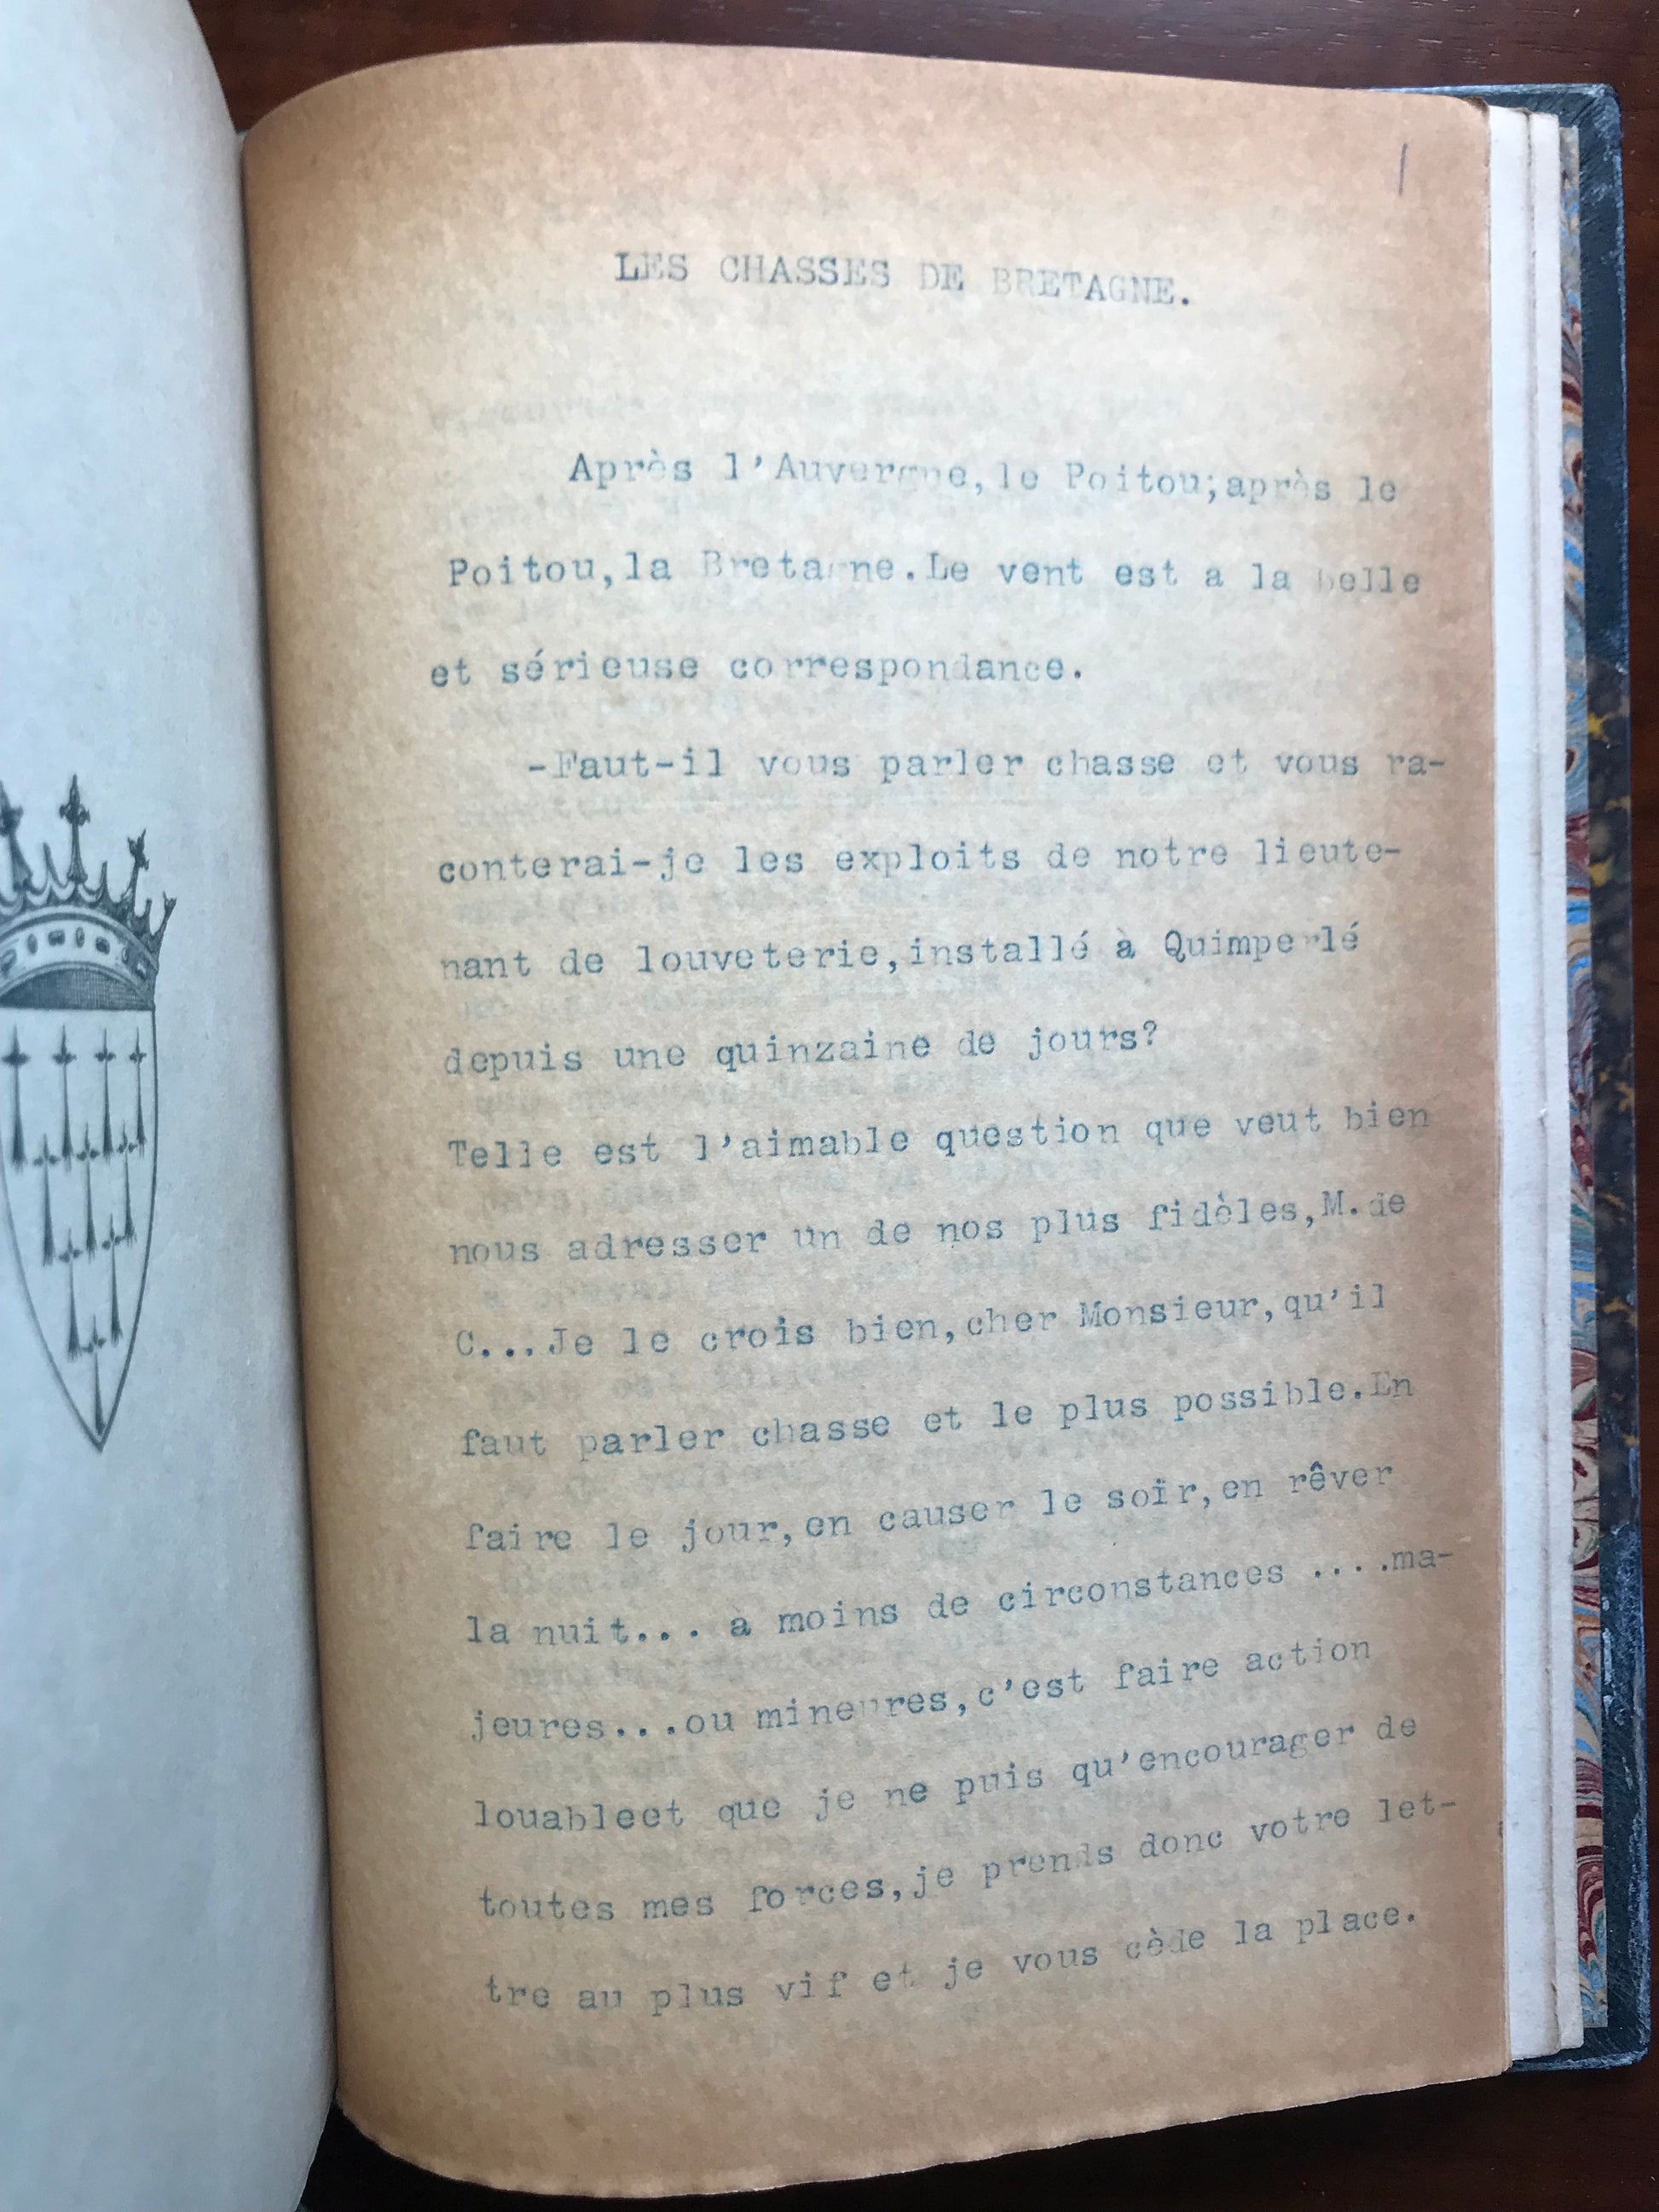 1
LES CHASSES DE BRETAGNE.
Après l'Auvergne,le Poitou;après le
Poitou,la Bretagne.Le vent est a la belle
et sérieuse correspondance.
-Faut-il vous parler chasse et vous ra-
conterai-je les exploits de notre lieute-
nant de louveterie,installé à Quimperlé
depuis une quinzaine de jours?
Telle est l'aimable question que veut bien
nous adresser un de nos plus fidèles,M.de
C...Je le crois bien,cher Monsieur,qu'il
faut parler chasse et le plus possible.En
faire le jour,en causer le soir,en rêver
la nuit... à moins de circonstances ....ma-
jeures...ou mineures,c'est faire action
louableet que je ne puis qu'encourager de
toutes mes forces,je prends donc votre let-
tre au plus vif et je vous cède la place.